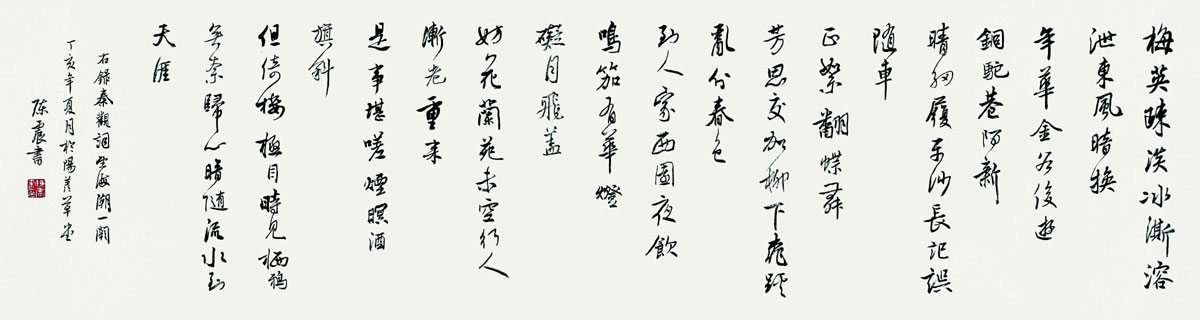 梅英疎淡冰澌溶
泄東風暗換
年華金谷俊遊
銅駝巷陌新
晴細履平沙長記誤
隨車
正絮翻蝶舞
芳思交加柳下桃蹊
亂分春色
到人家西園夜飲
鳴笳有華燈
礙月飛蓋
妨花蘭苑未空行人
漸老重來
是事堪嗟煙暝酒
旗斜
但倚樓極目時見栖鴉
無奈歸心暗隨流水到
天涯
右錄秦觀詞望海潮一闋
丁亥年夏月於陽羨草堂
陳震書